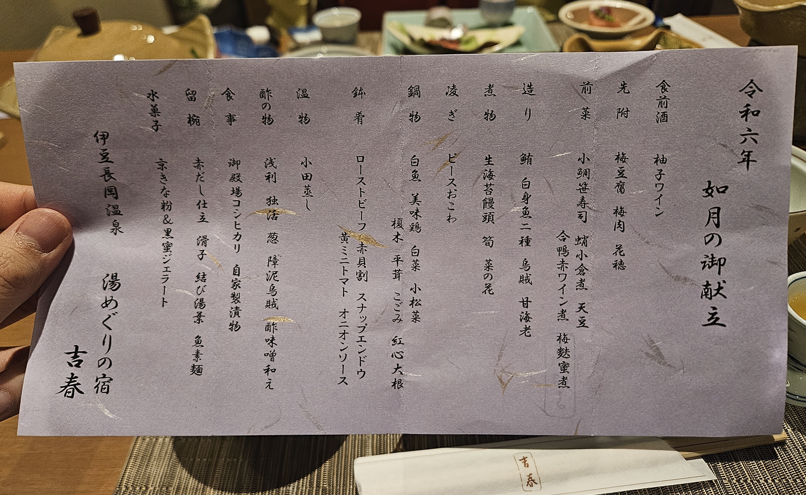 令和六年
如月の御献立
食前酒 柚子ワイン
先附 梅豆腐 梅肉 花穂
前菜 小鯛笹寿司 蛸小倉煮 天豆
合鴨赤ワイン煮 梅麩蜜煮
造り 鮪 白身魚二種 烏賊 甘海老
煮物 生海苔饅頭 筍 菜の花
凌ぎ ピースおこわ
鍋物 白魚 美味鶏 白菜 小松菜
榎木 平茸 こごみ 紅心大根
鉢肴 ローストビーフ 赤貝割 スナップエンドウ
黄ミニトマト オニオンソース
温物 小田蒸し
酢の物 浅利 独活 葱 障泥烏賊 酢味噌和え
食事 御殿場コシヒカリ 自家製漬物
留椀 赤だし仕立 滑子 結び湯葉 魚素麺
水菓子 京きな粉&黒蜜ジェラート
伊豆長岡温泉 湯めぐりの宿
吉春
吉春